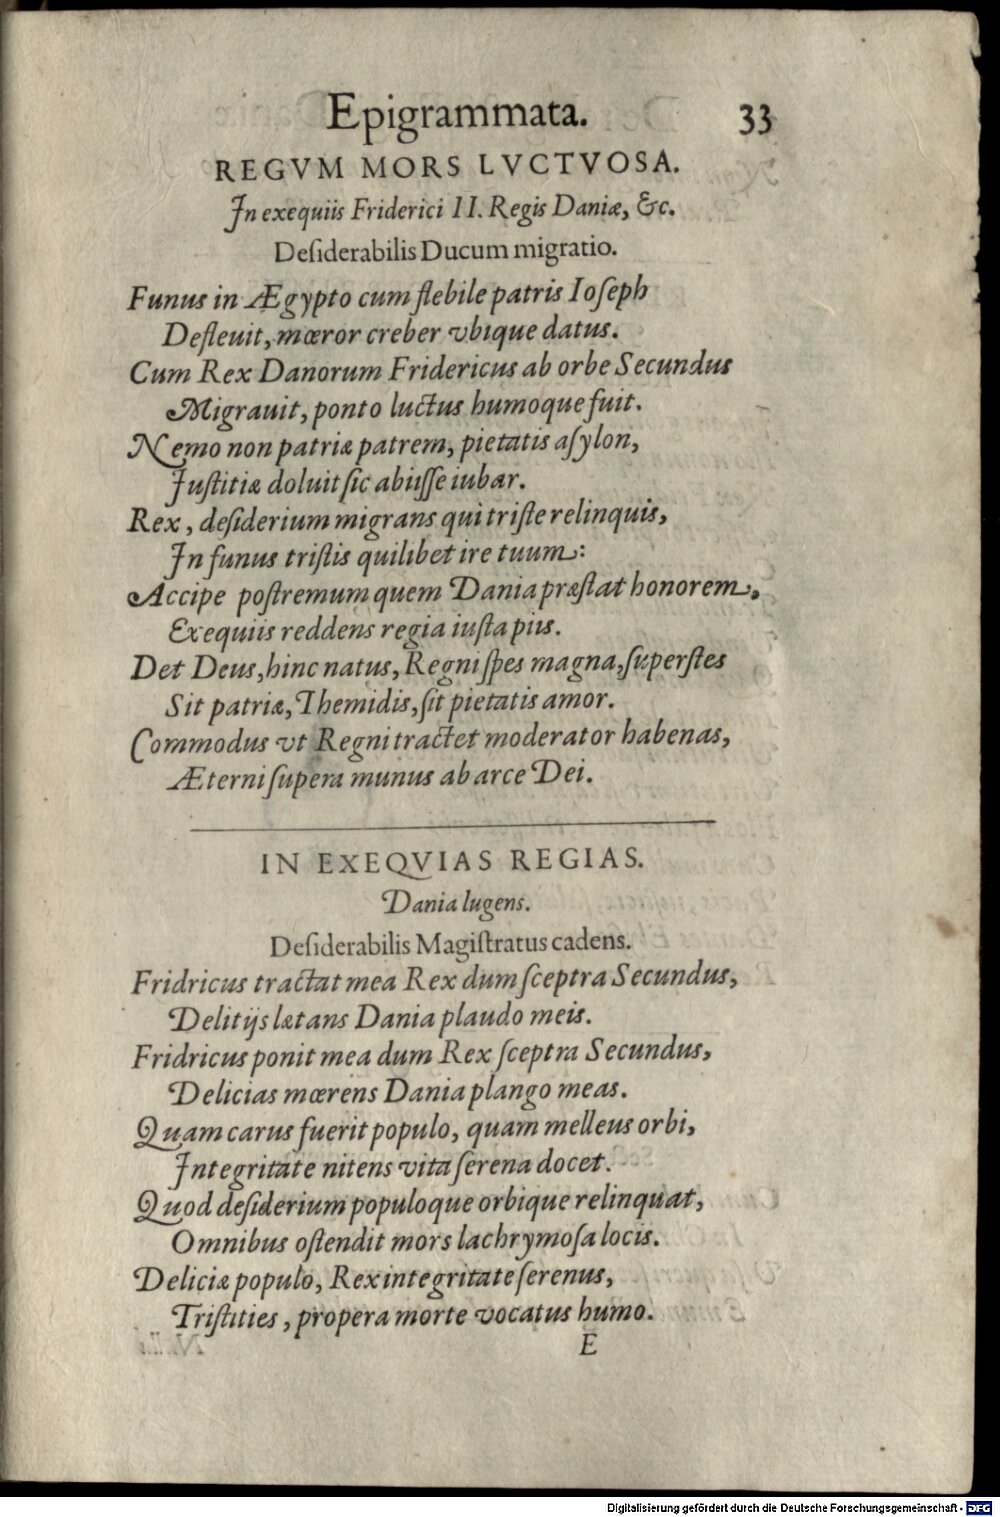 Epigrammata. 33
REGVM MORS LVCTVOSA.
In exequiis Friderici II. Regis Daniæ, &c.
Deſiderabilis Ducum migratio.
Funus in Ægypto cum flebile patris Ioſeph
Defleuit, mœror creber vbique datus.
Cum Rex Danorum Fridericus ab orbe Secundus
Migrauit, ponto luctus humoque fuit.
Nemo non patriæ patrem, pietatis aſylon,
Iuſtitiæ doluit ſic abiiſſe iubar.
Rex, deſiderium migrans qui triſte relinquis,
In funus triſtis quilibet ire tuum:
Accipe poſtremum quem Dania præſtat honorem,
Exequiis reddens regia iuſta piis.
Det Deus, hinc natus, Regni ſpes magna, ſuperſtes
Sit patriæ, Themidis, ſit pietatis amor.
Commodus vt Regni tractet moderator habenas,
Æterni ſupera munus ab arce Dei.
IN EXEQVIAS REGIAS.
Dania lugens.
Deſiderabilis Magiſtratus cadens.
Fridricus tractat mea Rex dum ſceptra Secundus,
Delitijs lætans Dania plaudo meis.
Fridricus ponit mea dum Rex ſceptra Secundus,
Delicias mœrens Dania plango meas.
Quam carus fuerit populo, quam melleus orbi,
Integritate nitens vita ſerena docet.
Quod deſiderium populoque orbique relinquat,
Omnibus oſtendit mors lachrymoſa locis.
Deliciæ populo, Rex integritate ſerenus,
Triſtities, propera morte vocatus humo.
E
Digitalisierung gefördert durch die Deutsche Forschungsgemeinschaft - DFG